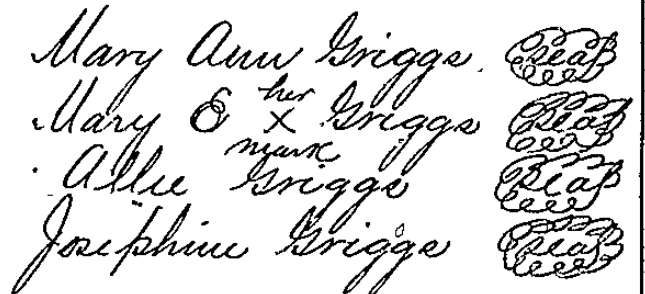 Mary Ann Griggs. Seal
her
Mary E x Griggs Seal
mark
Allie Griggs Seal
Josephine Griggs Seal